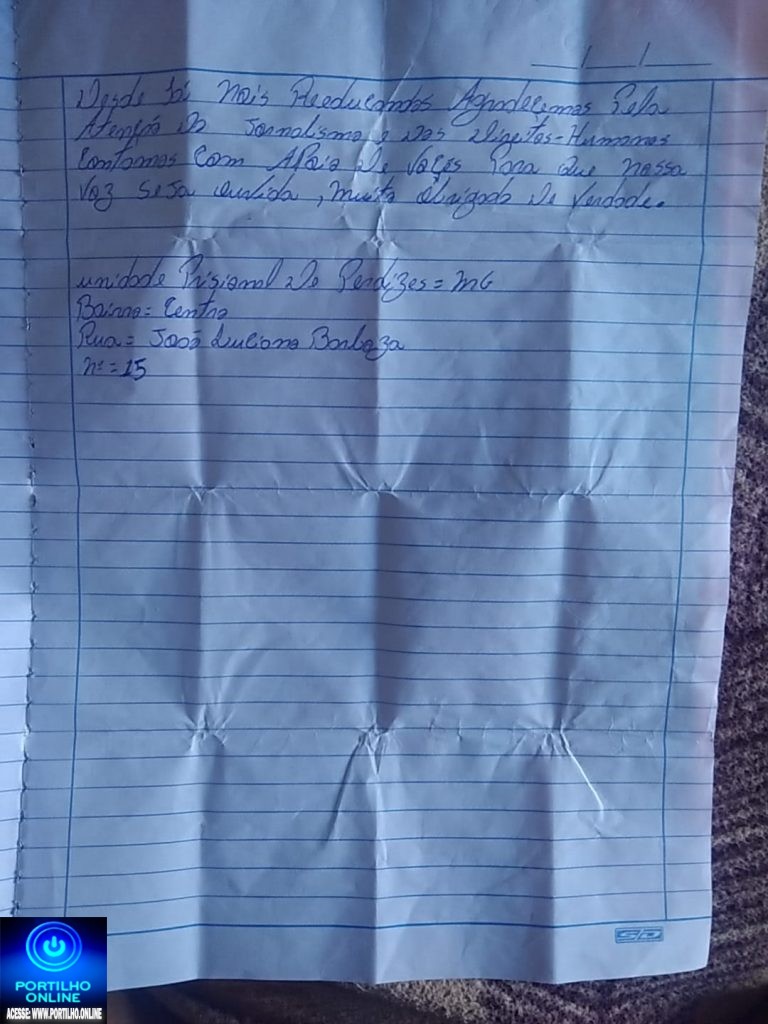 __/__/__
Desde já Nois Reeducandos Agradecemos Pela
Atenção Do Jornalismo e Dos Direitos-Humanos
Contamos Com APoio De Voçes Para Que Nossa
Voz Seja ouvida, Muito Obrigado De Verdade.
unidade Prisional De Perdizes = MG
Bairro = Centro
Rua = José Luciano Barboza
Nº = 15
SD
PORTILHO
ONLINE
ACESSE: WWW.PORTILHO.ONLINE